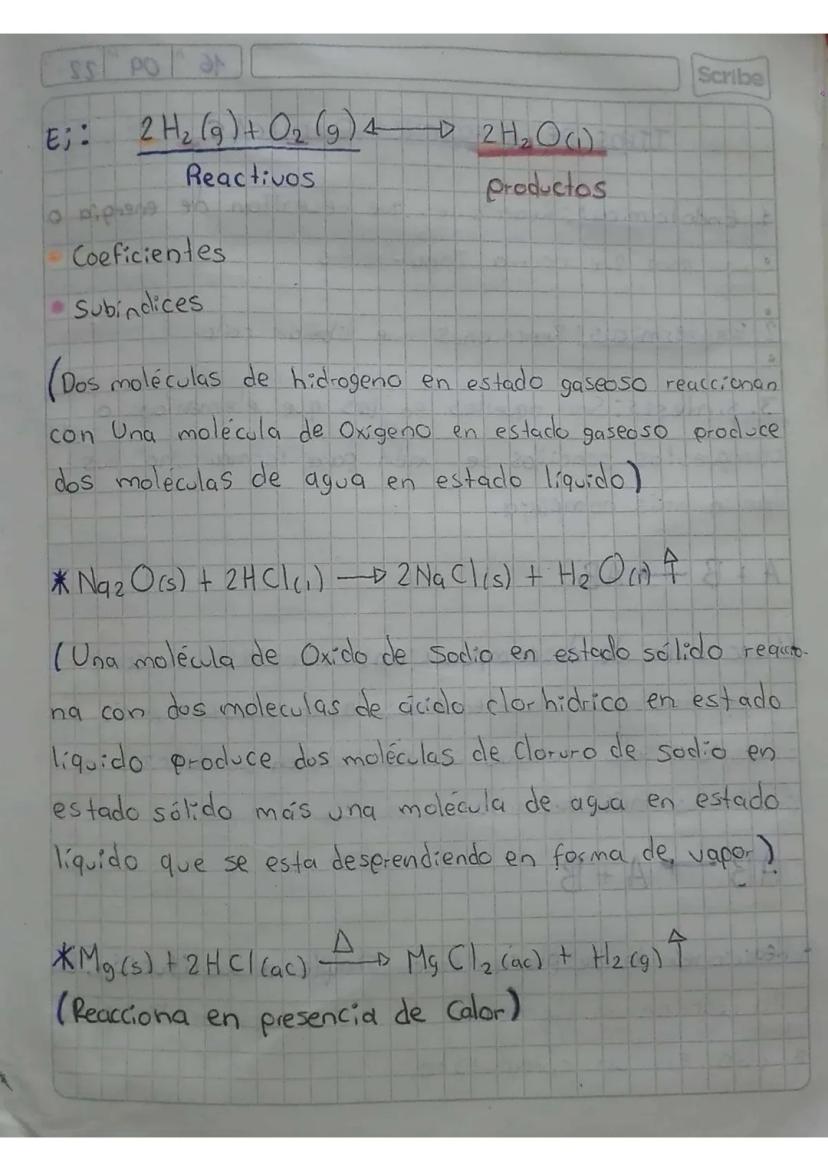 Scribe
Ej: 2H₂(g) + O₂(g) ◁—▷ 2H₂O(l)
Reactivos productos
• Coeficientes
• Subíndices
(Dos moléculas de hidrogeno en estado gaseoso reaccionan
con Una molécula de Oxígeno en estado gaseoso produce
dos moléculas de agua en estado líquido)
* Na₂O(s) + 2HCl(l) —▷ 2NaCl(s) + H₂O(l)↑
(Una molécula de Oxido de Sodio en estado sólido reaccio-
na con dos moleculas de ácido clorhidrico en estado
líquido produce dos moléculas de Cloruro de Sodio en
estado sólido más una molécula de agua en estado
líquido que se esta desprendiendo en forma de vapor)
* Mg(s) + 2HCl(ac) —Δ—▷ MgCl₂(ac) + H₂(g)↑
(Reacciona en presencia de Calor)